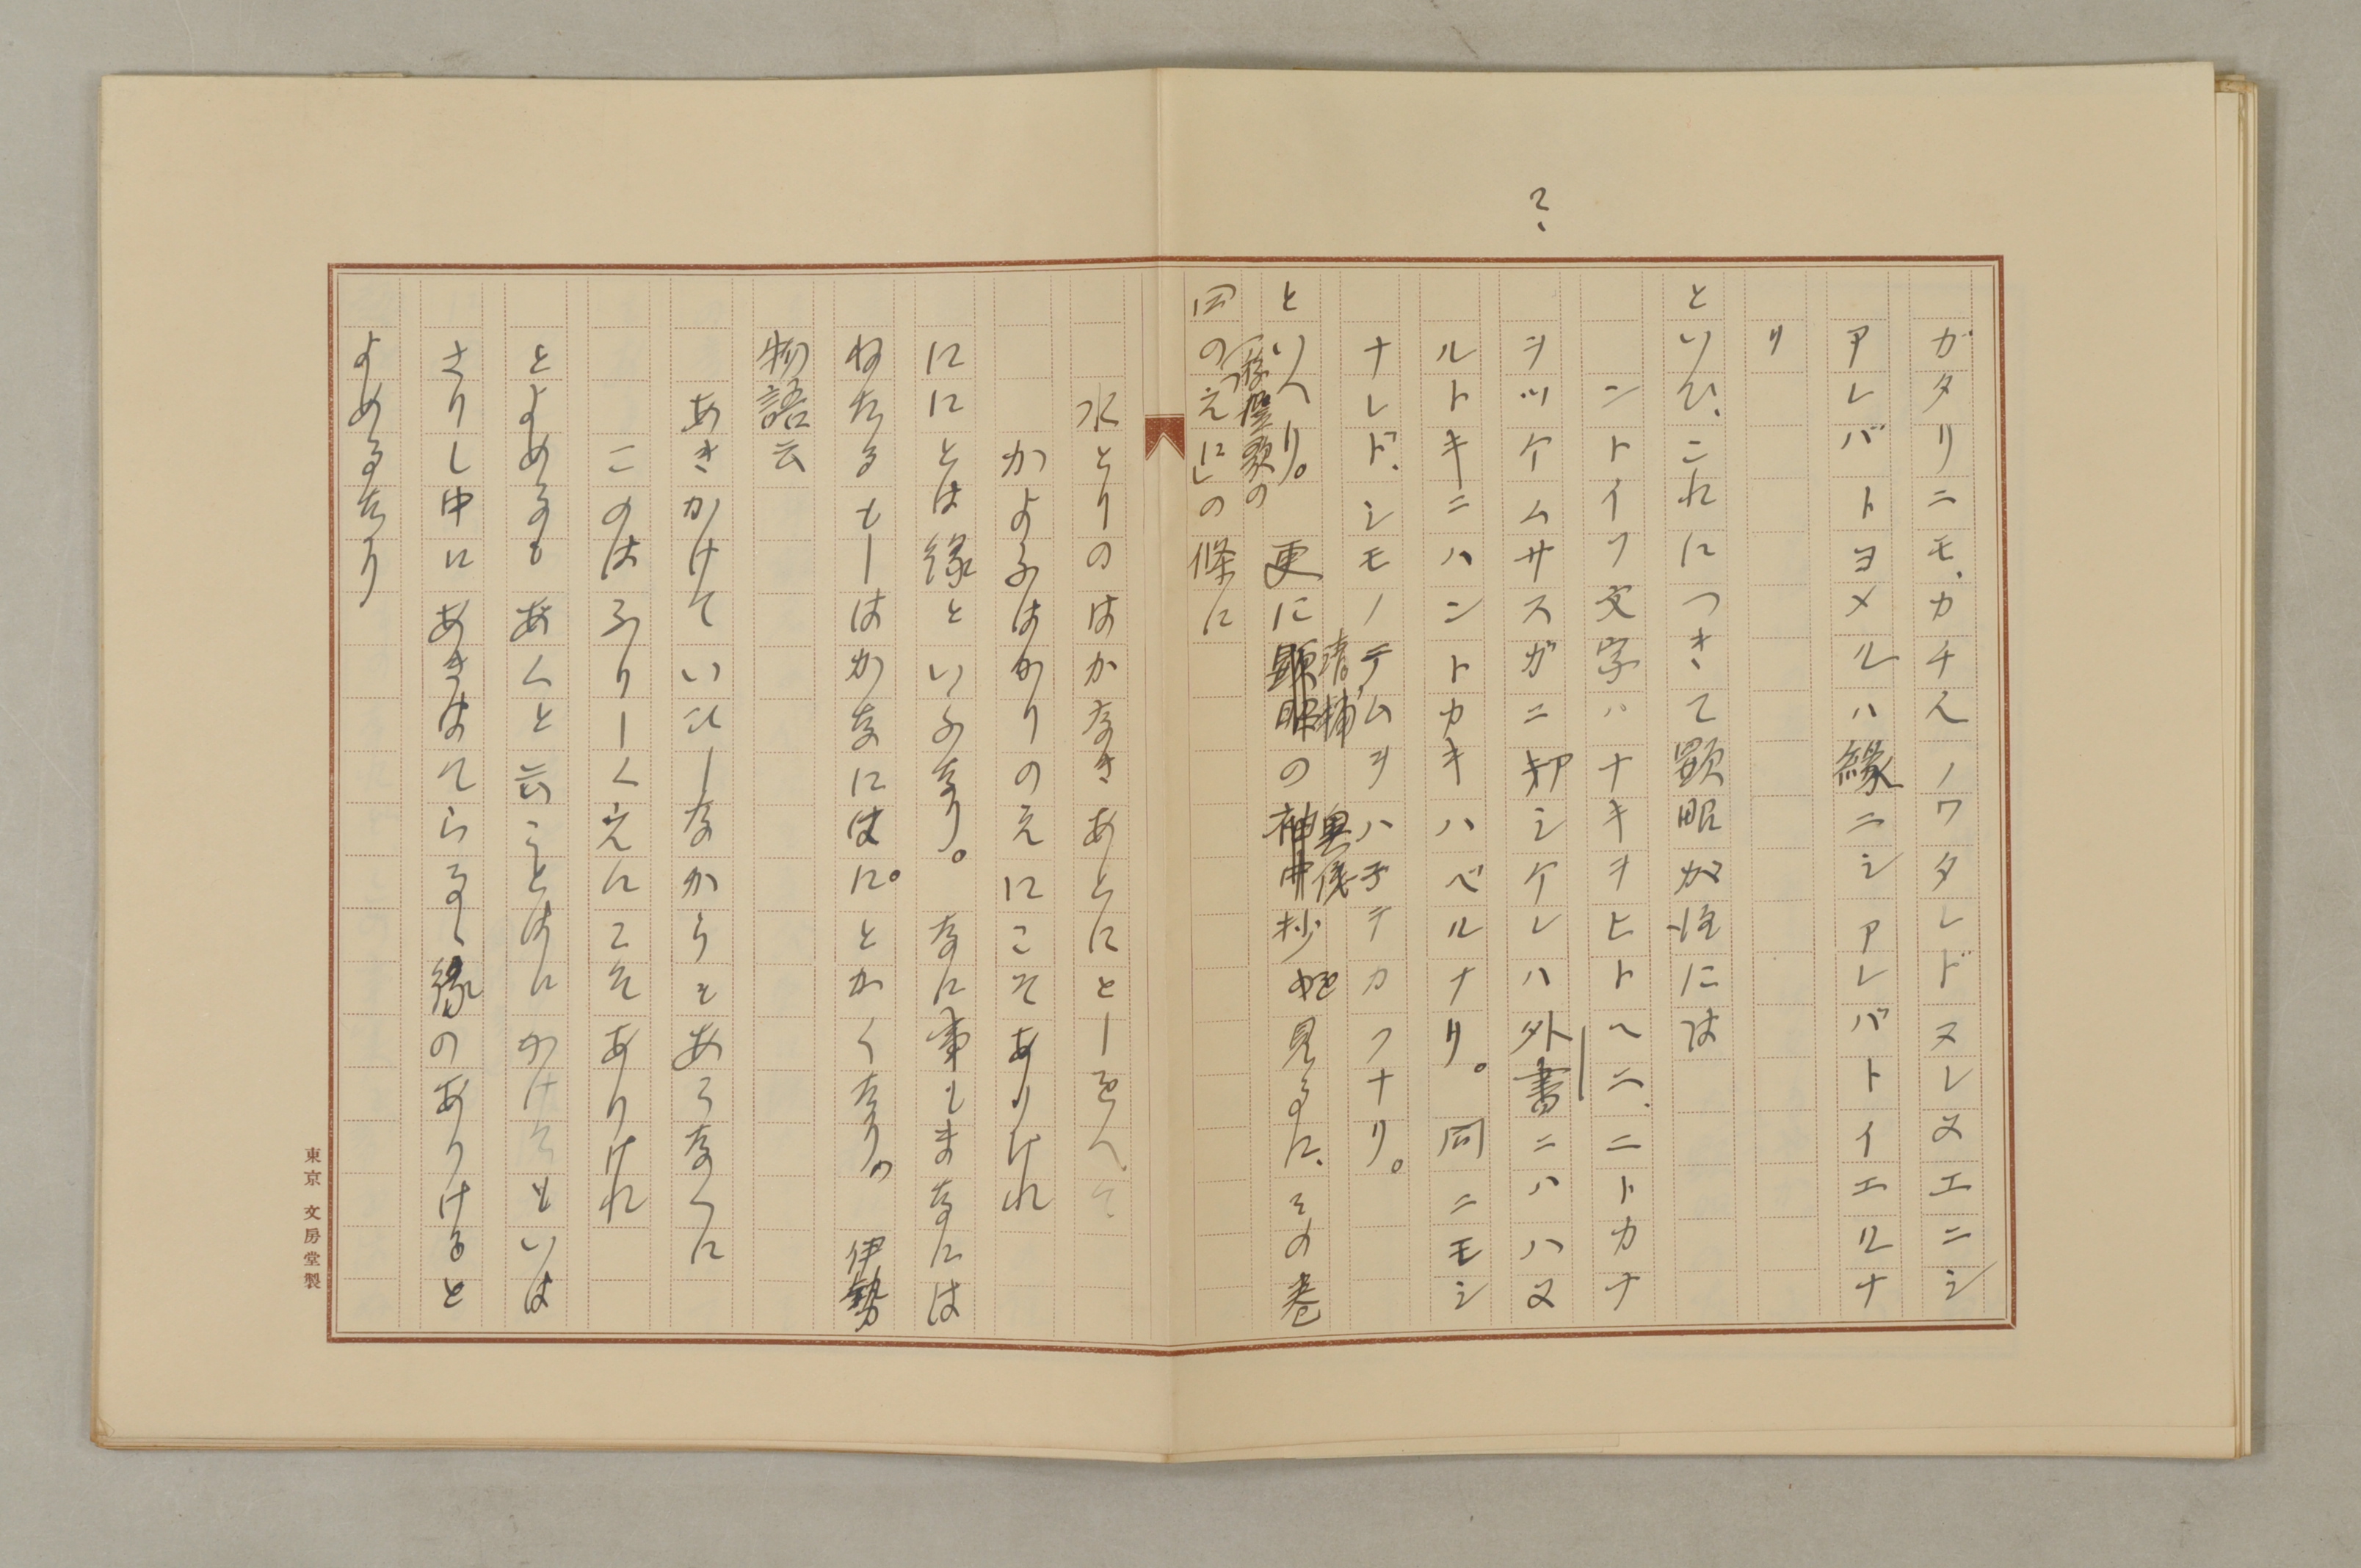 ?
ガタリニモ、カチ人ノワタレドヌレヌエニシ
アレバトヨメルハ縁ニシアレバトイエルナ
リ
といひ、これにつきて顕昭が注には
ントイフ文字ハナキヲヒトヘニ、ニトカナ
ヲツケムサスガニ却シケレハ外書ニハハヌ
ルトキニハントカキハベルナリ。同ニモシ
ナレド、シモノテムヲハ子テカフナリ。
清輔 奥儀
といへり。更に顕昭の神中抄を見るに、その巻
(稼聖歌の
四の「えに」の條に
水とりのはかなきあとにとしをへて
かよふはかりのえにこそありけれ
ににとは縁といふなり。なに事もまなには
ねたるもしはかなにはに。とかくなり。伊勢
物語云
あきかけていひしなからもあらなくに
このはふりしくえにこそありけれ
とよめるもあくと云ことはにかけてもといは
さりし中にあきはてらるゝ縁のありけると
よめるなり
東京 文房堂製